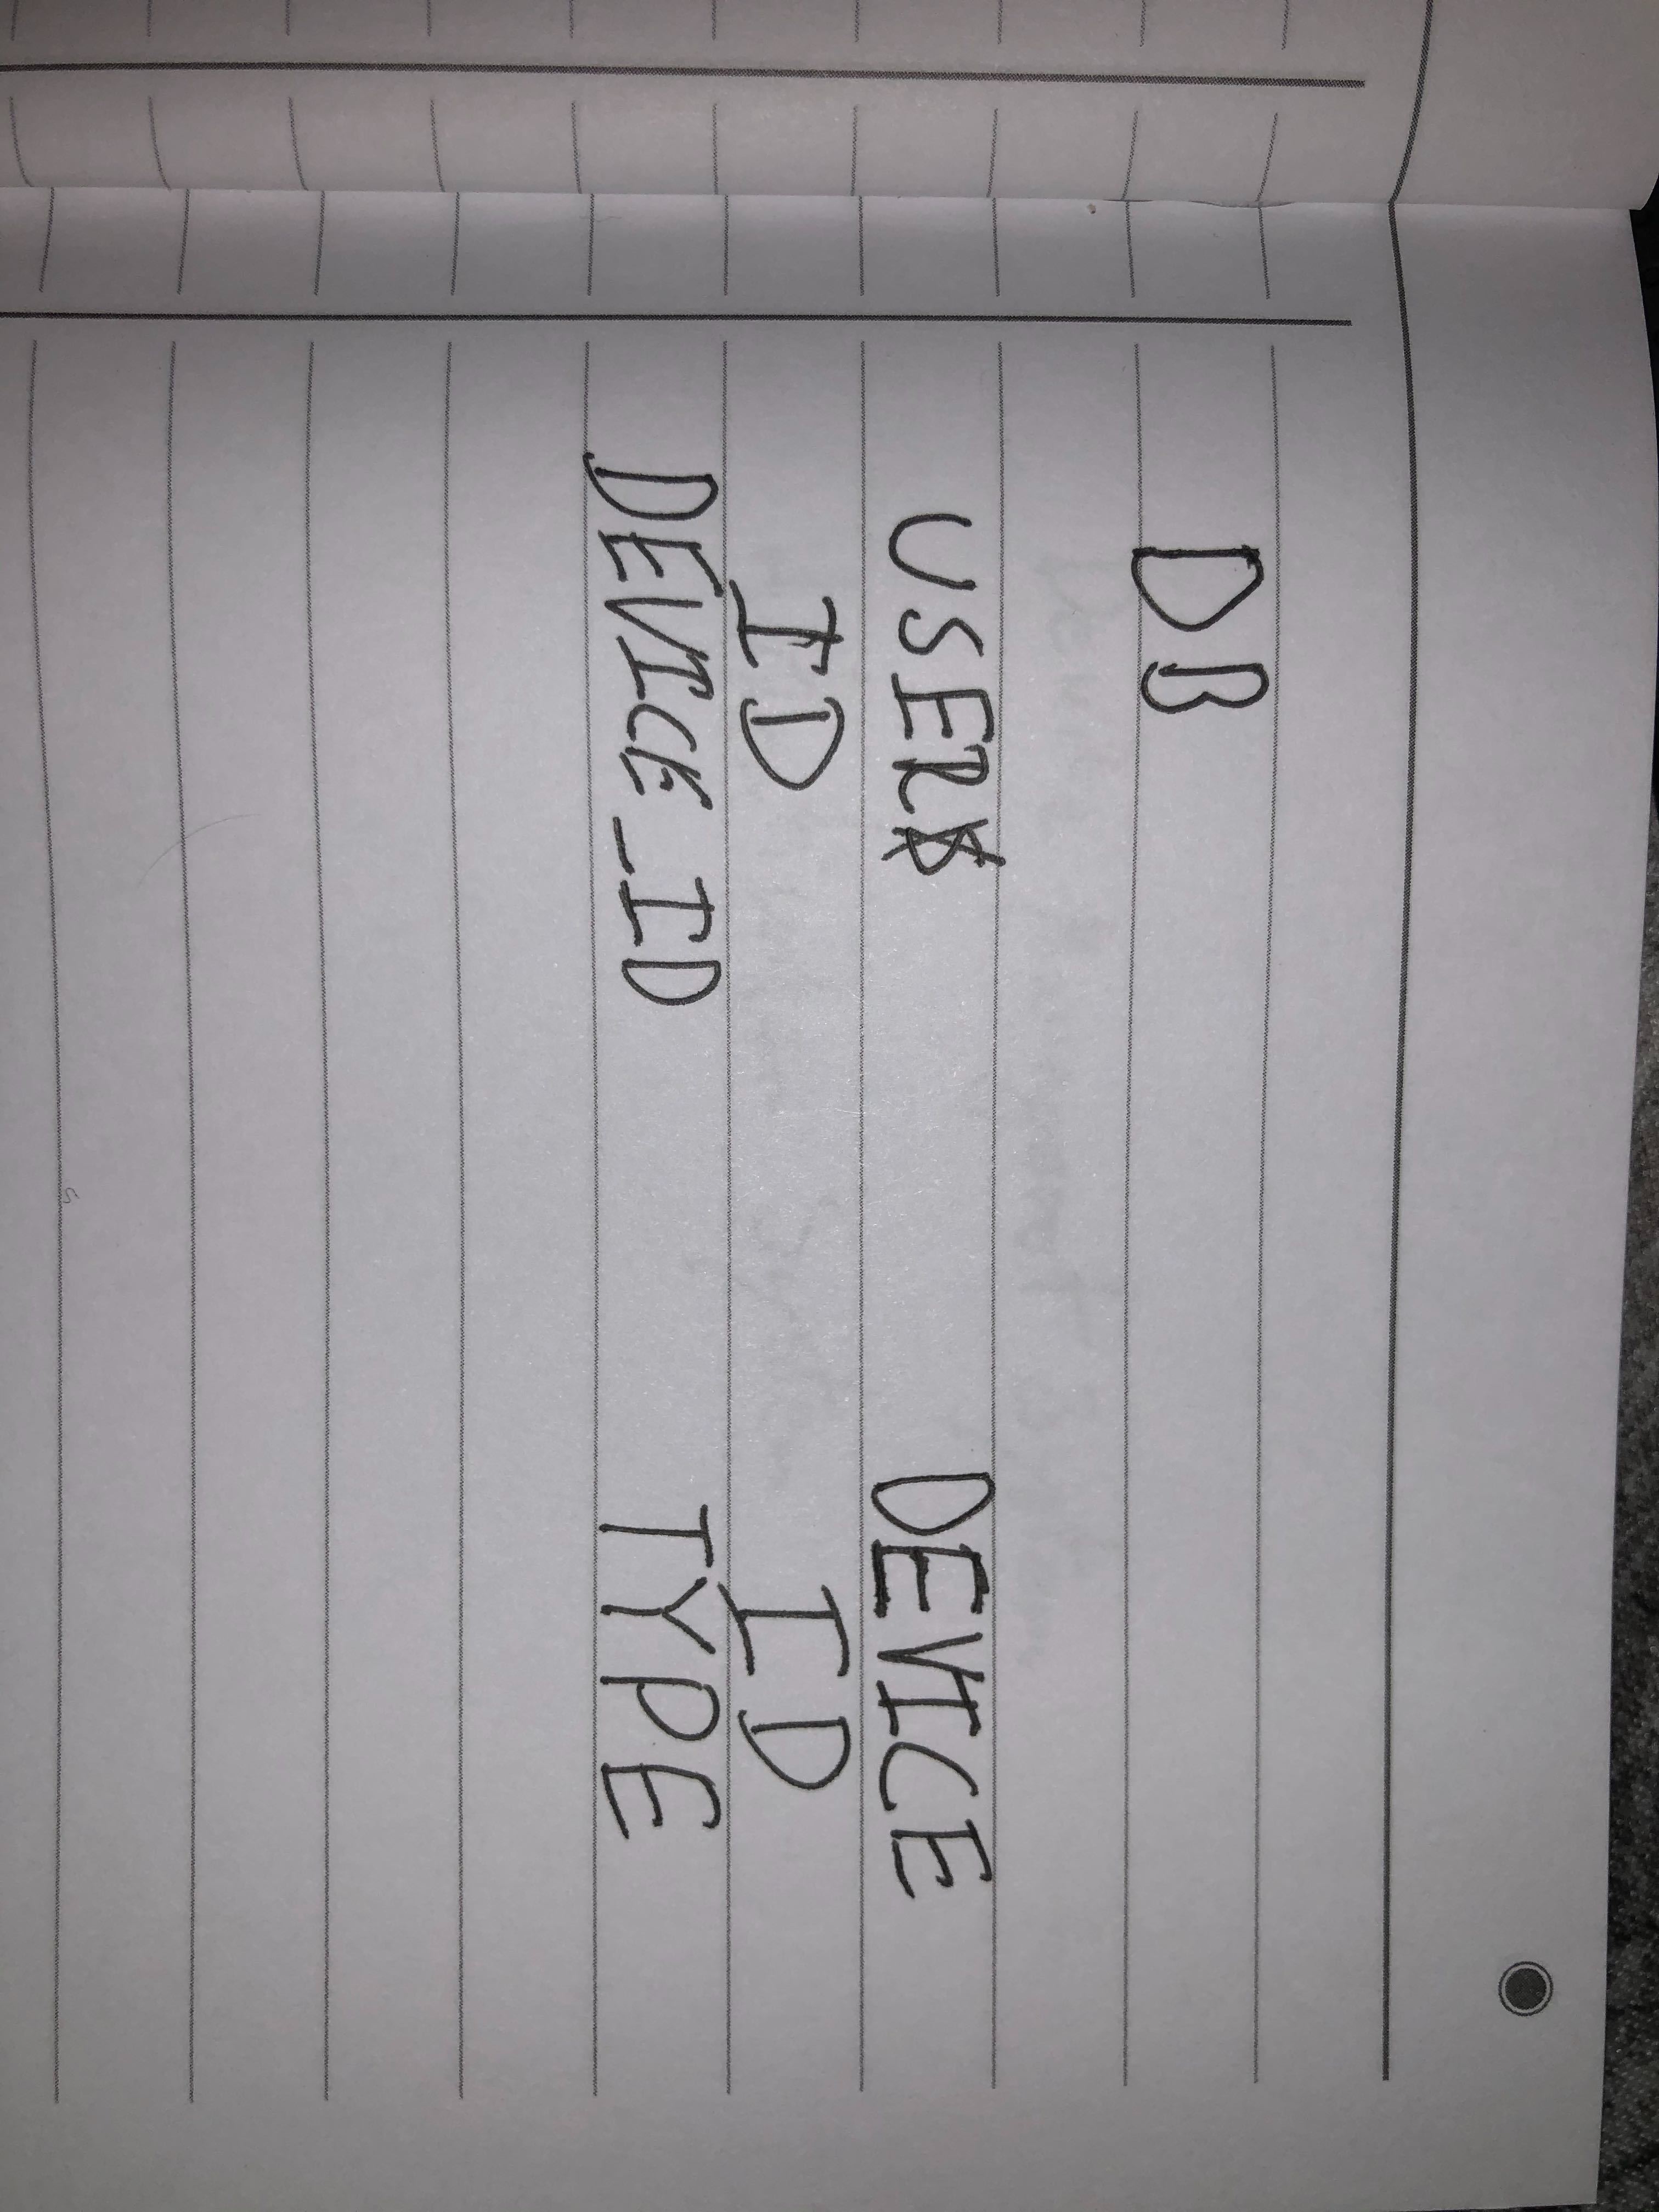 DB
USER DEVICE
ID ID
DEVICE_ID TYPE